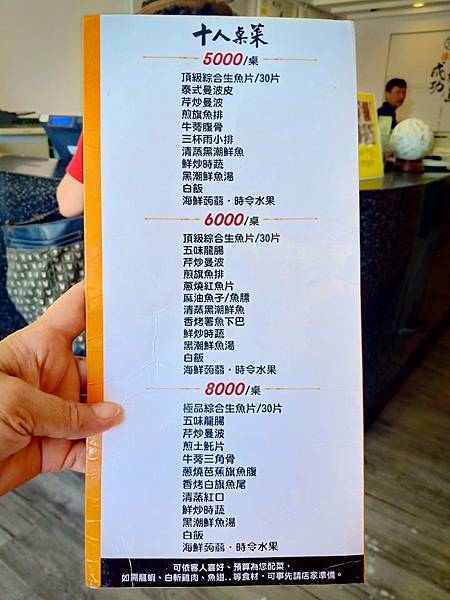 十人桌菜
5000/桌
頂級綜合生魚片/30片
泰式曼波皮
芹炒曼波
煎旗魚排
牛蒡腹骨
三杯雨小排
清蒸黑潮鮮魚
鮮炒時蔬
黑潮鮮魚湯
白飯
海鮮蒟蒻·時令水果
6000/桌
頂級綜合生魚片/30片
五味龍腸
芹炒曼波
煎旗魚排
蔥燒紅魚片
麻油魚子/魚膘
清蒸黑潮鮮魚
香烤署魚下巴
鮮炒時蔬
黑潮鮮魚湯
白飯
海鮮蒟蒻·時令水果
8000/桌
極品綜合生魚片/30片
五味龍腸
芹炒曼波
煎土魠片
牛蒡三角骨
蔥燒芭蕉旗魚腹
香烤白旗魚尾
清蒸紅口
鮮炒時蔬
黑潮鮮魚湯
白飯
海鮮蒟蒻·時令水果
可依客人喜好、預算為您配菜,
如需龍蝦、白斬雞肉、魚翅..等食材,可事先請店家準備。
成功